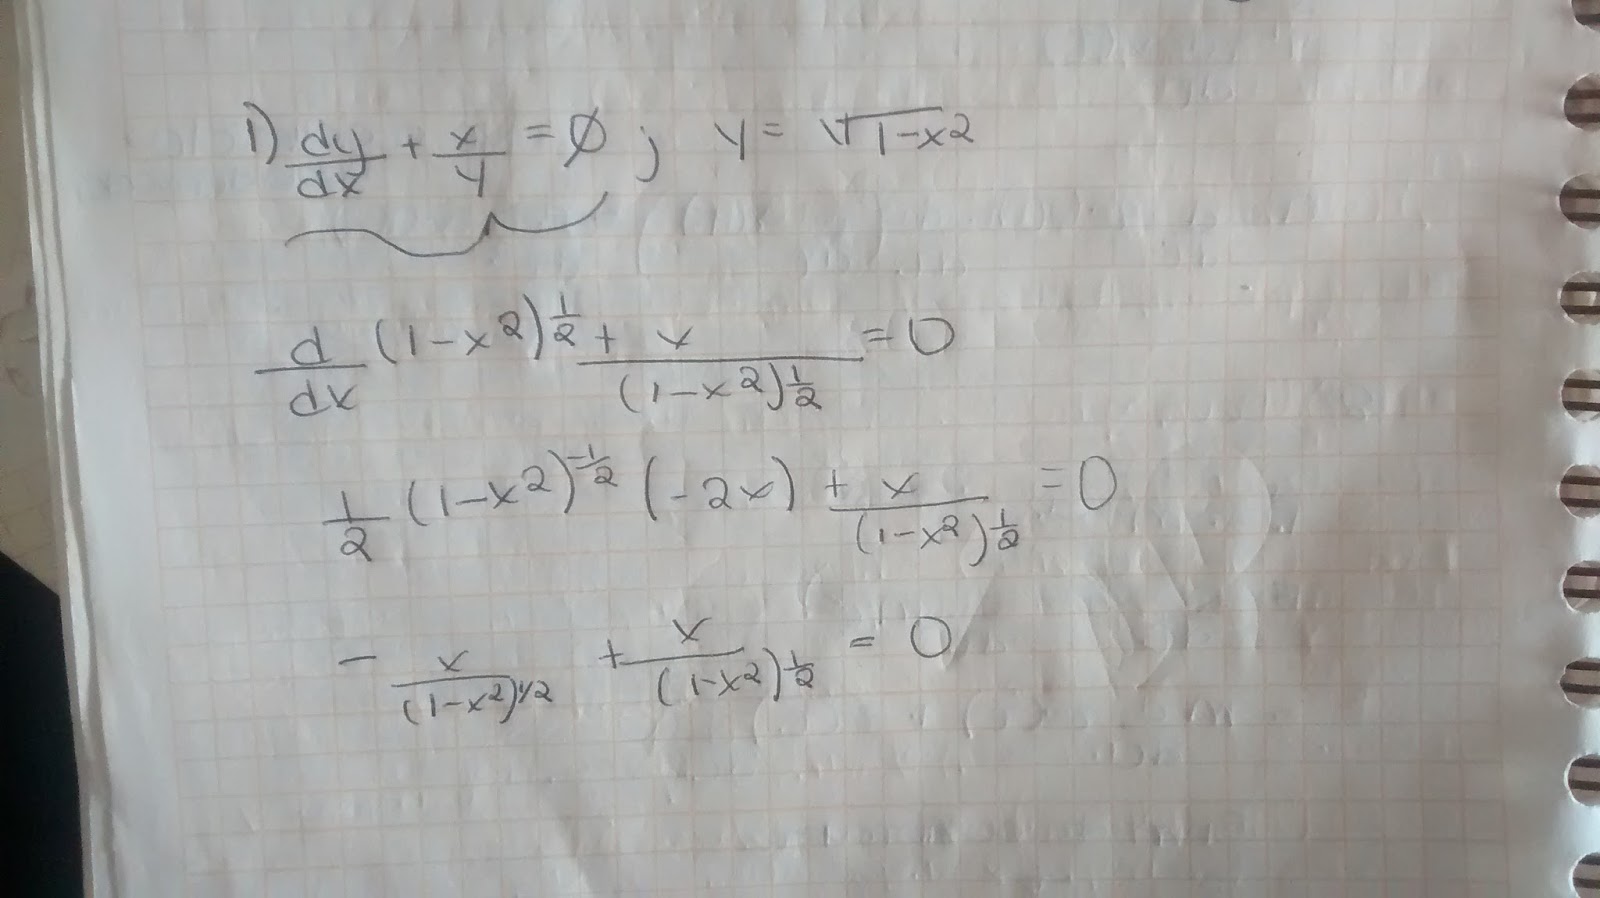 1) dy/dx + x/y = ∅ ; y = √1-x2
d/dx (1-x2)^1/2 + x/(1-x2)^1/2 = 0
1/2 (1-x2)^-1/2 (-2x) + x/(1-x2)^1/2 = 0
- x/(1-x2)^1/2 + x/(1-x2)^1/2 = 0